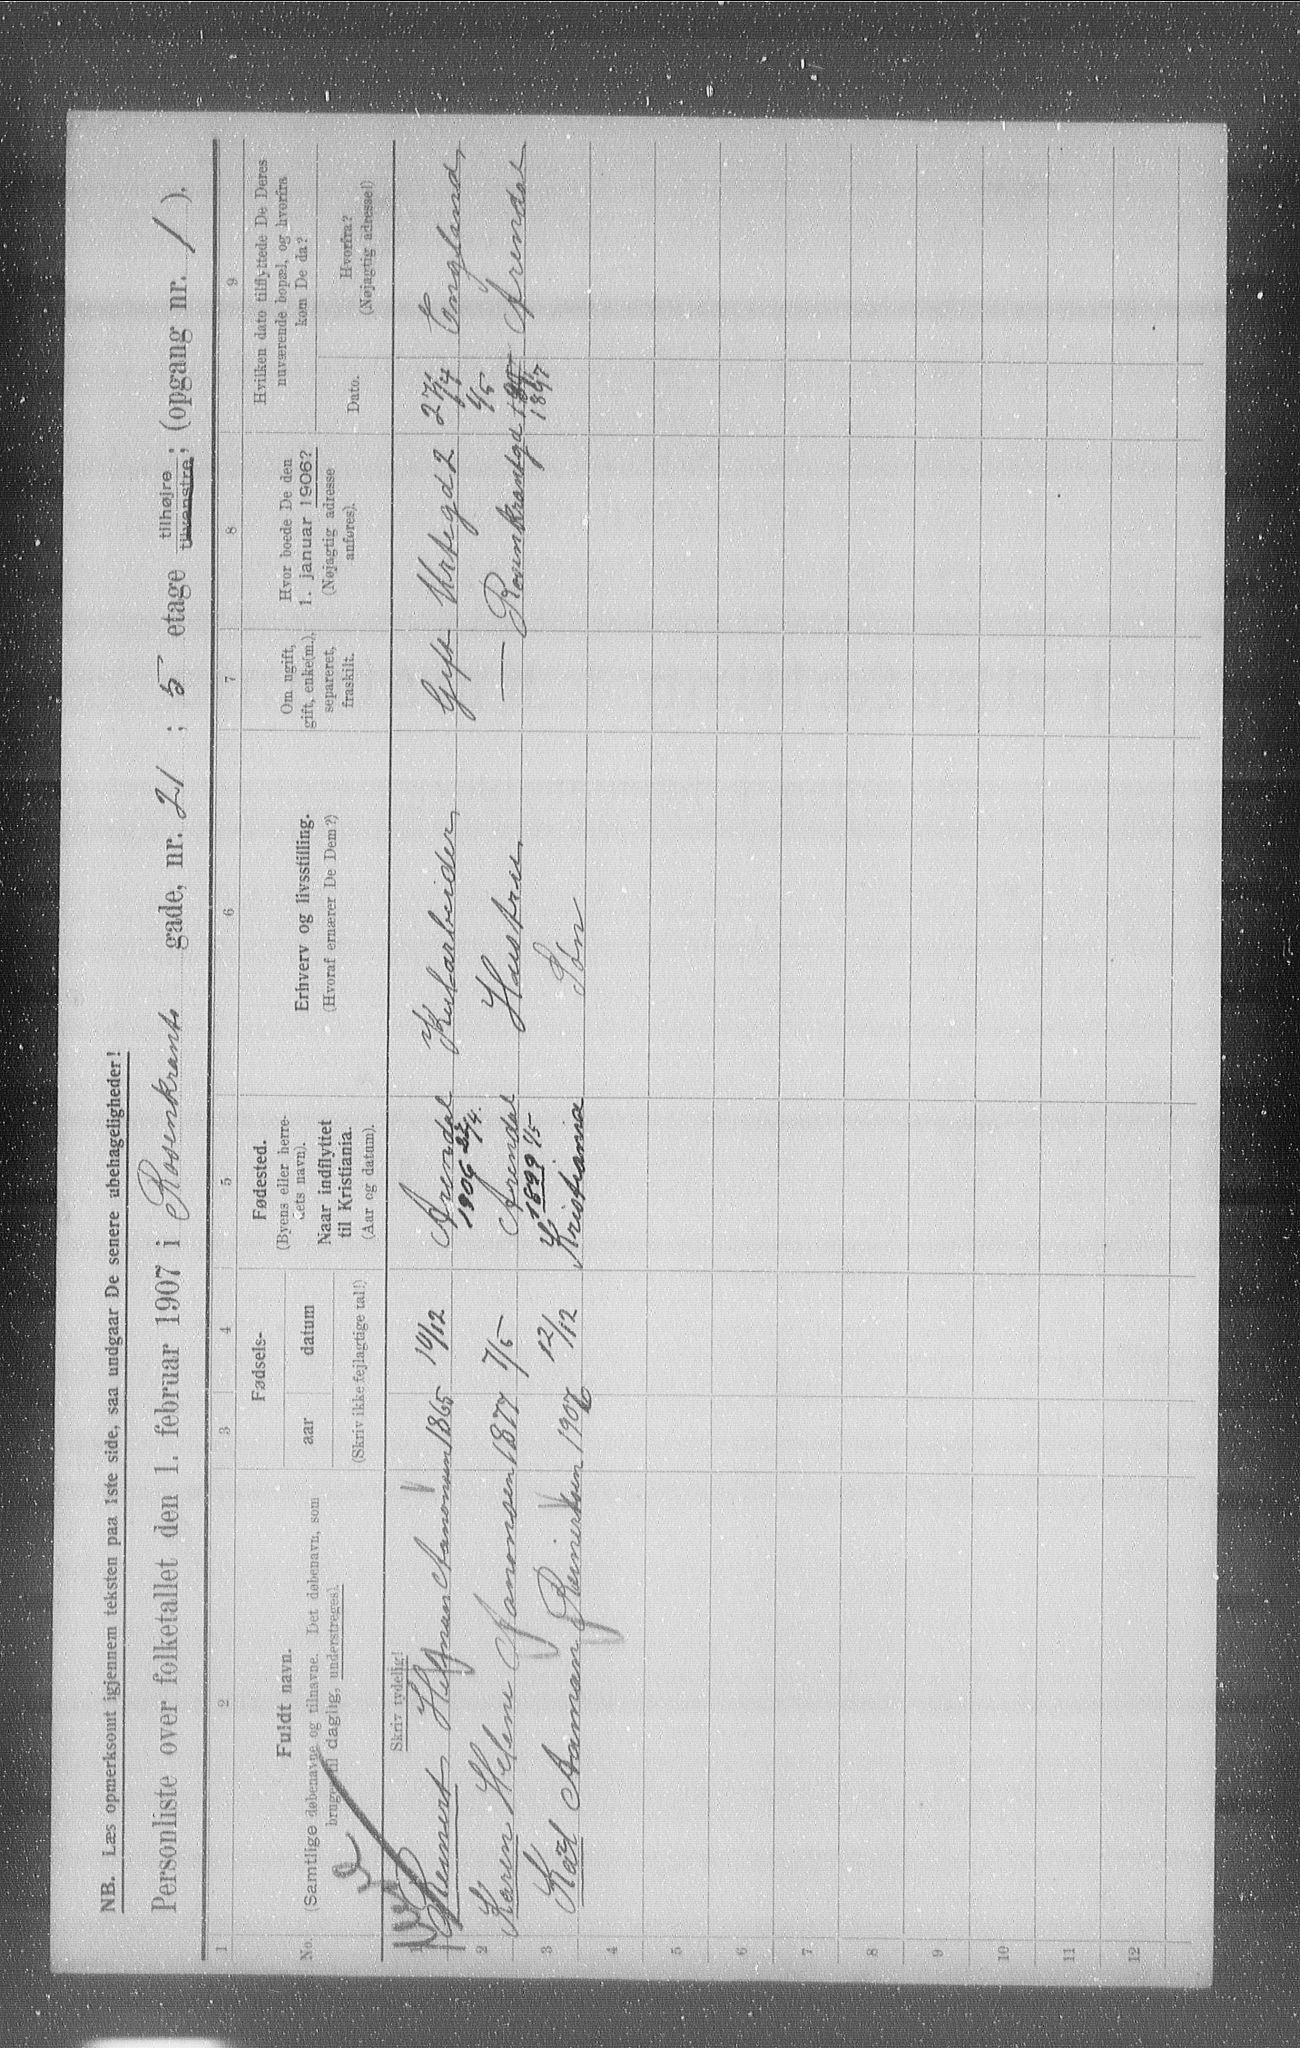 NB. Læs opmerksomt igjennem teksten paa 1ste side, saa undgaar De senere ubehageligheder!
Personliste over folketallet den 1. februar 1907 i Rosenkrants gade, nr. 21 ; 5 etage tilhøjre ; tilvenstre ; (opgang nr. 1 ).
1 2 3 4 5 6 7 8 9
No.
Fuldt navn.
(Samtlige døbenavne og tilnavne. Det døbenavn, som
bruges til daglig, understreges).
Fødsels-
aar datum
(Skriv ikke fejlagtige tal!)
Fødested.
(Byens eller herre-
dets navn).
Naar indflyttet
til Kristiania.
(Aar og datum).
Erhverv og livsstilling.
(Hvoraf ernærer De Dem?)
Om ugift,
gift, enke(m.),
separeret,
fraskilt.
Hvor boede De den
1. januar 1906?
(Nøjagtig adresse
anføres).
Hvilken dato tilflyttede De Deres
nuværende bopæl, og hvorfra
kom De da?
Dato.
Hvorfra?
(Nøjagtig adresse!)
Skriv tydelig!
1 Reinert Aamonsen 1865 14/12 Arendal 1906 27/4. Kularbeider Gift Urtegd 2 27/4 England
2 Karen Helene Aamonsen 1877 7/5 Arendal 1899 1/5 Hustru — Rosenkrantzgd 1/5 1897 Arendal
3 Karl Aaman Reinertsen 1906 12/12 Kristiania Søn
4
5
6
7
8
9
10
11
12